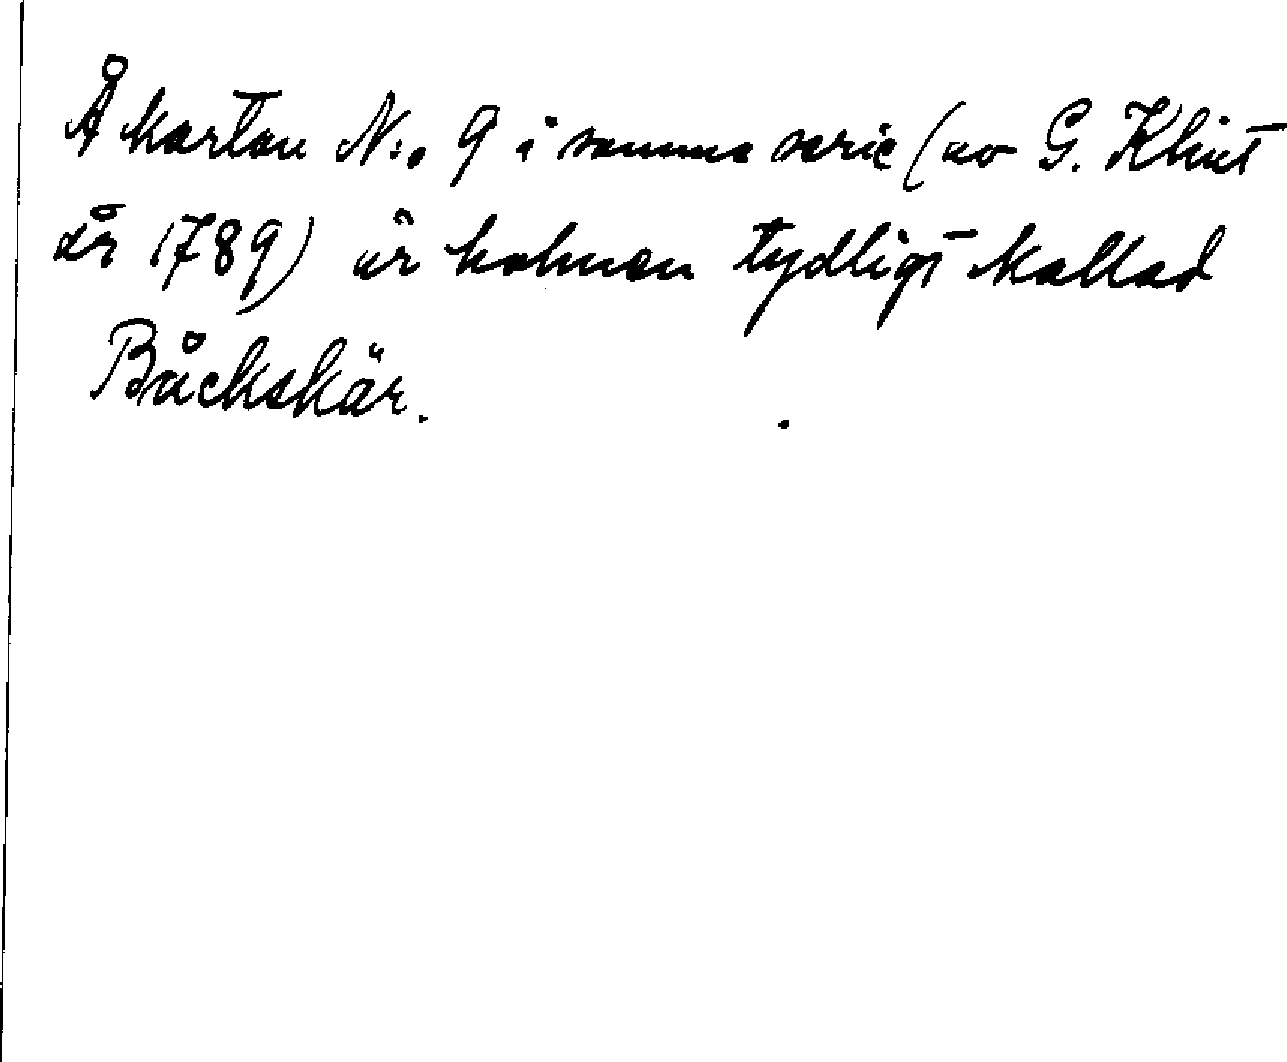 Å kartan N:o 9 i samma serie (av G. Klint
år 1789) är holmen tydligt kallad
Båckskär.